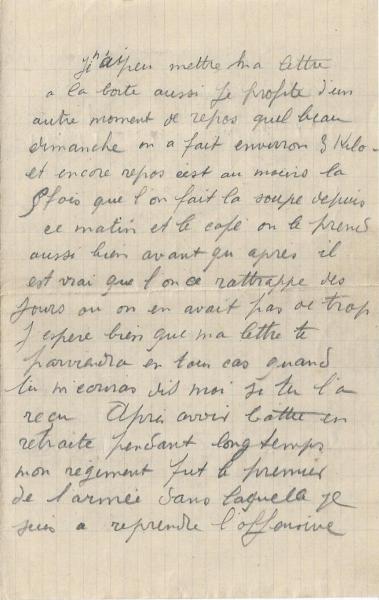 Je n'ai peu mettre ma lettre
a la boite aussi Je profite d'un
autre moment de repos quel beau
dimanche on a fait environ 8 Kilo-
et encore repos c'est au moins la
fois que l'on fait la soupe depuis
ce matin et le café on le prend
aussi bien avant qu apres il
est vrai que l'on ce rattrappe des
Jours ou on en avait pas de trop
J espere bien que ma lettre te
parviendra en tous cas quand
tu m'ecriras dis moi si tu l'a
reçu Après avoir battu en
retraite pendant longtemps
mon regiment fut le premier
de l'armée dans laquelle je
suis a reprendre l'offensive